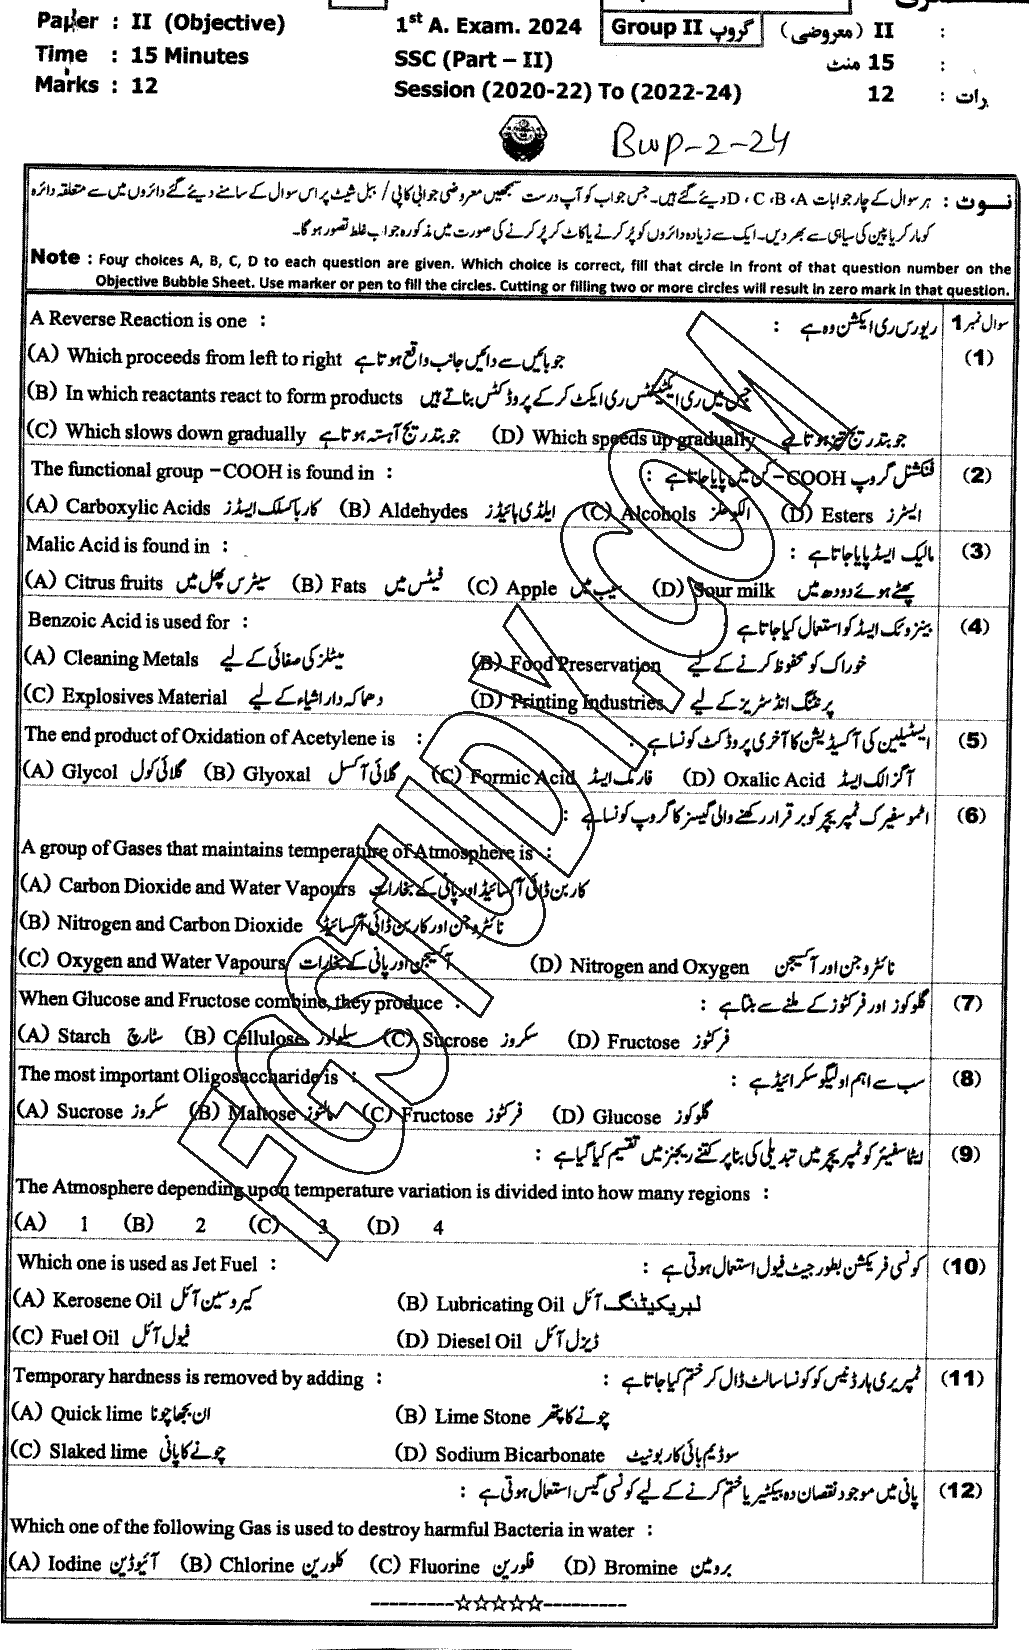 Paper : II (Objective) 1st A. Exam. 2024 Group II گروپ II (معروضی) :
Time : 15 Minutes SSC (Part – II) 15 منٹ :
Marks : 12 Session (2020-22) To (2022-24) 12 :
Bwp-2-24
نوٹ : ہر سوال کے چار جوابات D ، C ،B ،A دیئے گئے ہیں۔ جس جواب کو آپ درست سمجھیں معروضی جوابی کاپی / ببل شیٹ پر اس سوال کے سامنے دیئے گئے دائروں میں سے متعلقہ دائرہ
کو مارکر یا پین کی سیاہی سے بھر دیں۔ ایک سے زیادہ دائروں کو پُر کرنے یا کاٹ کر پُر کرنے کی صورت میں مذکورہ جواب غلط تصور ہو گا۔
Note : Four choices A, B, C, D to each question are given. Which choice is correct, fill that circle in front of that question number on the
Objective Bubble Sheet. Use marker or pen to fill the circles. Cutting or filling two or more circles will result in zero mark in that question.
A Reverse Reaction is one : ریورس ری ایکشن وہ ہے : سوال نمبر 1
(A) Which proceeds from left to right جو بائیں سے دائیں جانب واقع ہوتا ہے (1)
(B) In which reactants react to form products جس میں ری ایکٹنٹس ری ایکٹ کر کے پروڈکٹس بناتے ہیں
(C) Which slows down gradually جو بتدریج آہستہ ہوتا ہے (D) Which speeds up gradually جو بتدریج تیز ہوتا ہے
The functional group –COOH is found in : فنکشنل گروپ COOH– کن میں پایا جاتا ہے : (2)
(A) Carboxylic Acids کاربا کسلک ایسڈز (B) Aldehydes ایلڈی ہائیڈز (C) Alcohols الکوحلز (D) Esters ایسٹرز
Malic Acid is found in : مالیک ایسڈ پایا جاتا ہے : (3)
(A) Citrus fruits سیٹرس پھل میں (B) Fats فیٹس میں (C) Apple سیب میں (D) Sour milk پھٹے ہوئے دودھ میں
Benzoic Acid is used for : بینزوئک ایسڈ کو استعمال کیا جاتا ہے (4)
(A) Cleaning Metals میٹلز کی صفائی کے لیے (B) Food Preservation خوراک کو محفوظ کرنے کے لیے
(C) Explosives Material دھماکہ دار اشیاء کے لیے (D) Printing Industries پرنٹنگ انڈسٹریز کے لیے
The end product of Oxidation of Acetylene is : ایسٹیلین کی آکسیڈیشن کا آخری پروڈکٹ کونسا ہے : (5)
(A) Glycol گلائی کول (B) Glyoxal گلائی آکسل (C) Formic Acid فارمک ایسڈ (D) Oxalic Acid آگزالک ایسڈ
اٹموسفیرک ٹمپریچر کو برقرار رکھنے والی گیسز کا گروپ کونسا ہے : (6)
A group of Gases that maintains temperature of Atmosphere is :
(A) Carbon Dioxide and Water Vapours کاربن ڈائی آکسائیڈ اور پانی کے بخارات
(B) Nitrogen and Carbon Dioxide نائٹروجن اور کاربن ڈائی آکسائیڈ
(C) Oxygen and Water Vapours آکسیجن اور پانی کے بخارات (D) Nitrogen and Oxygen نائٹروجن اور آکسیجن
When Glucose and Fructose combine, they produce : گلوکوز اور فرکٹوز کے ملنے سے بنتا ہے : (7)
(A) Starch سٹارچ (B) Cellulose سیلولوز (C) Sucrose سکروز (D) Fructose فرکٹوز
The most important Oligosaccharide is : سب سے اہم اولیگو سکرائیڈ ہے : (8)
(A) Sucrose سکروز (B) Maltose مالٹوز (C) Fructose فرکٹوز (D) Glucose گلوکوز
ایٹماسفیئر کو ٹمپریچر میں تبدیلی کی بنا پر کتنے ریجنز میں تقسیم کیا گیا ہے : (9)
The Atmosphere depending upon temperature variation is divided into how many regions :
(A) 1 (B) 2 (C) 3 (D) 4
Which one is used as Jet Fuel : کونسی فریکشن بطور جیٹ فیول استعمال ہوتی ہے : (10)
(A) Kerosene Oil کیروسین آئل (B) Lubricating Oil لبریکیٹنگ آئل
(C) Fuel Oil فیول آئل (D) Diesel Oil ڈیزل آئل
Temporary hardness is removed by adding : ٹمپریری ہارڈنیس کو کونسا سالٹ ڈال کر ختم کیا جاتا ہے : (11)
(A) Quick lime ان بجھا چونا (B) Lime Stone چونے کا پتھر
(C) Slaked lime چونے کا پانی (D) Sodium Bicarbonate سوڈیم بائی کاربونیٹ
پانی میں موجود نقصان دہ بیکٹیریا ختم کرنے کے لیے کونسی گیس استعمال ہوتی ہے : (12)
Which one of the following Gas is used to destroy harmful Bacteria in water :
(A) Iodine آئیوڈین (B) Chlorine کلورین (C) Fluorine فلورین (D) Bromine برومین
---------☆☆☆☆☆---------
FGSTUDY.COM